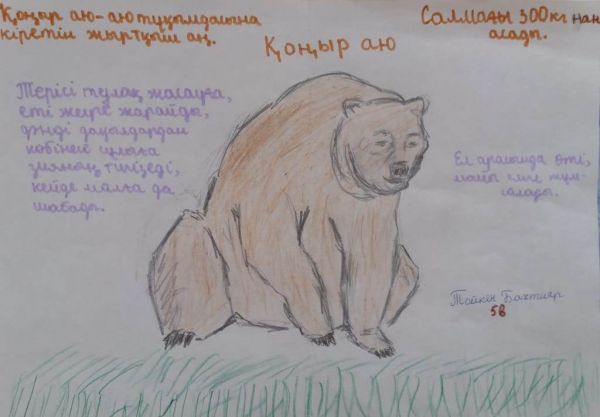 Қоңыр аю-аю тұқымдасына
кіретін жыртқыш аң.
Салмағы 300кг нан
асады.
Қоңыр аю
Терісі тулақ жасауға,
еті жеуге жарайды,
дәнді дақылдардан
көбінесе сұлыға
зиянын тигізеді,
кейде малға да
шабады.
Ел арасында өті,
майы емге
Бахтияр
5в